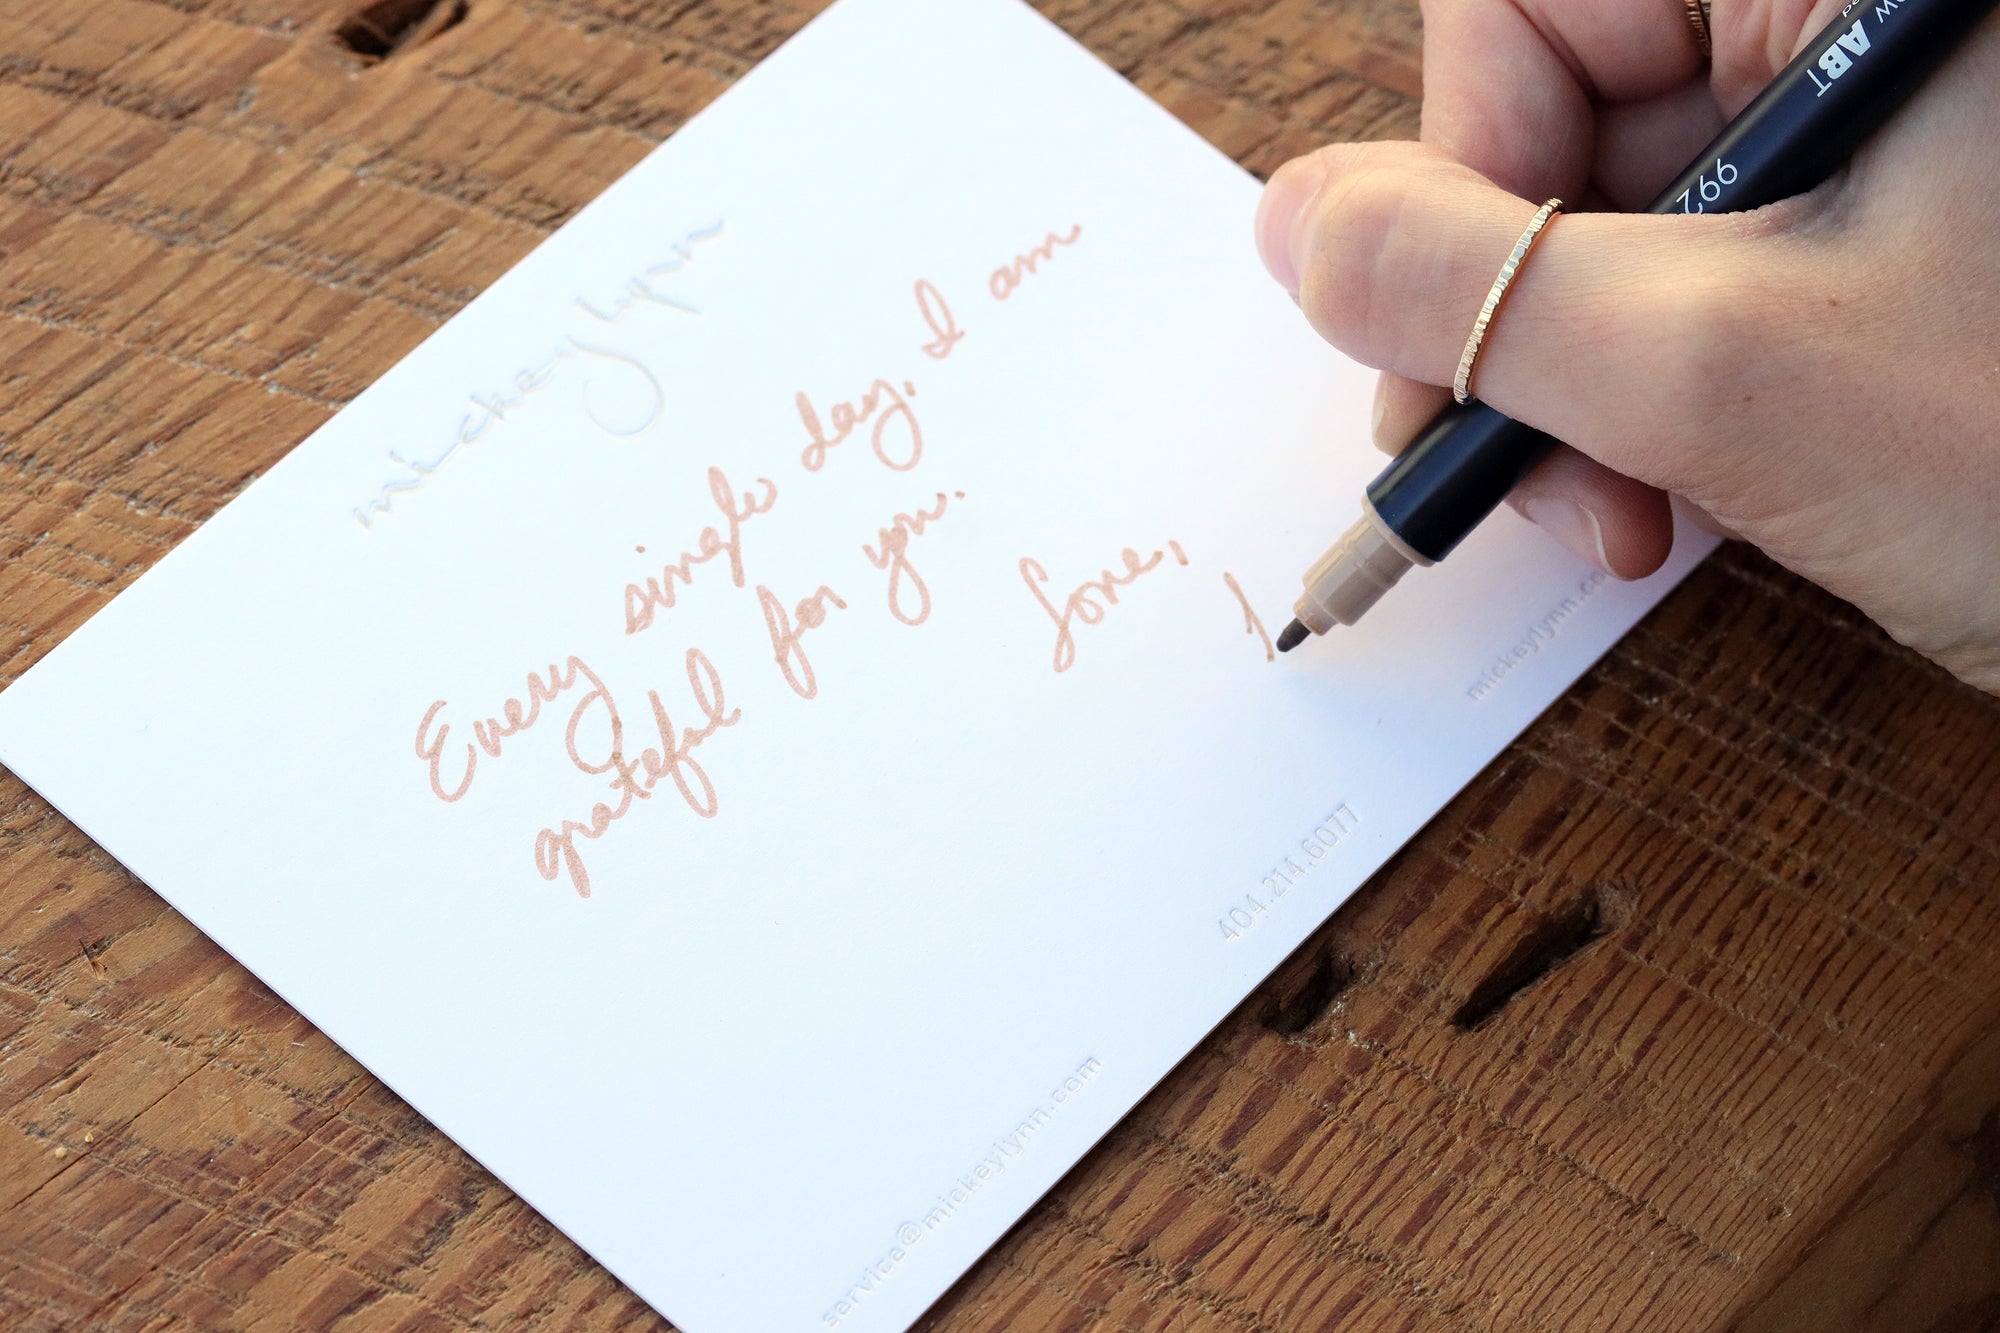 mickey lynn
Every single day, I am
grateful for you.
Love,
service@mickeylynn.com
404.214.6077
mickeylynn.co
ABT
992